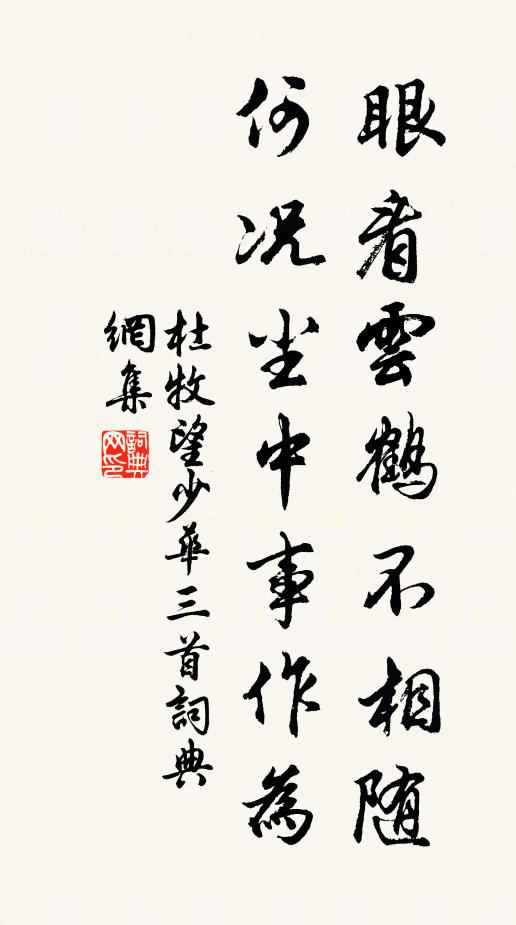 眼看雲鶴不相随
何况尘中事作為
杜牧望少華三首詞典
網集
詞典網印